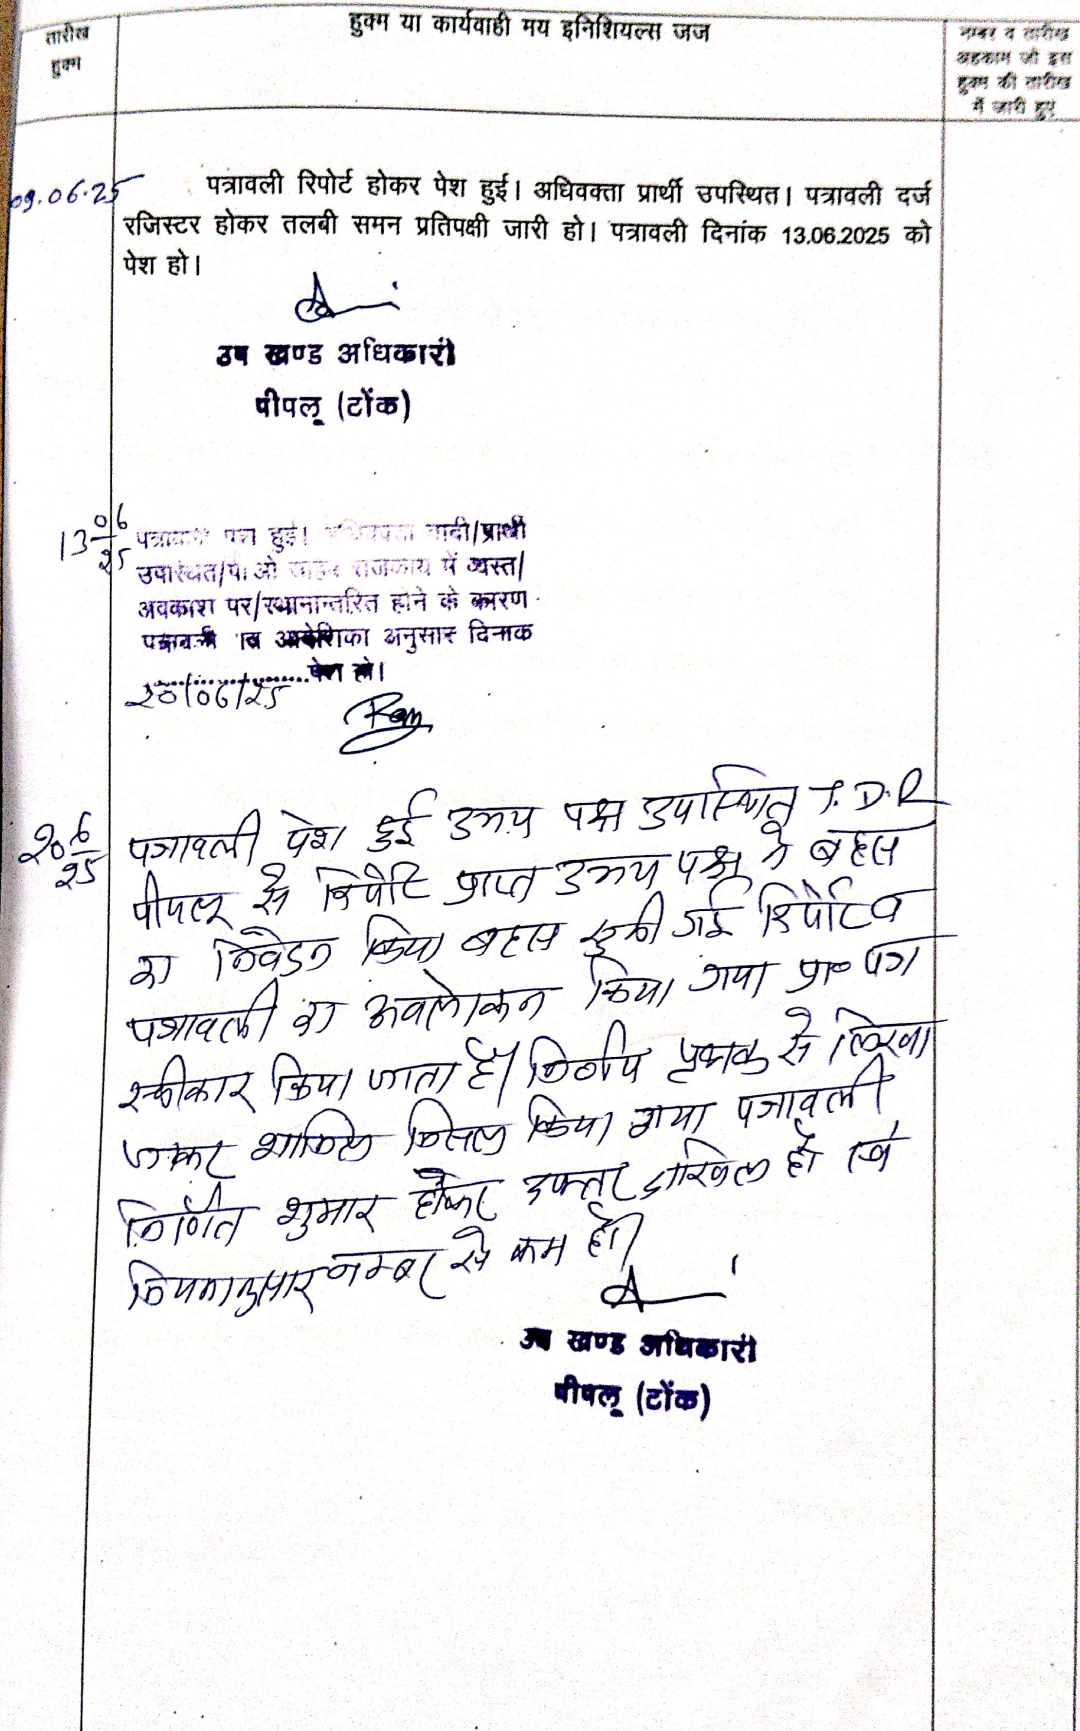 तारीख
हुक्म
हुक्म या कार्यवाही मय इनिशियल्स जज
नम्बर व तारीख
अहकाम जो इस
हुक्म की तारीख
में जारी हुए
09.06.25
पत्रावली रिपोर्ट होकर पेश हुई। अधिवक्ता प्रार्थी उपस्थित। पत्रावली दर्ज
रजिस्टर होकर तलबी समन प्रतिपक्षी जारी हो। पत्रावली दिनांक 13.06.2025 को
पेश हो।
उप खण्ड अधिकारी
पीपलू (टोंक)
13 06/25
पत्रावली पेश हुई। अधिवक्ता वादी/प्रार्थी
उपस्थित/पी.ओ साहब राजकाय में व्यस्त/
अवकाश पर/स्थानान्तरित होने के कारण
पत्रावली आदेशिका अनुसार दिनाक
..................पेश हो।
20/06/25
20 6/25
पत्रावली पेश हुई उभय पक्ष उपस्थित T.D.R
पीपलू से रिपोर्ट प्राप्त उभय पक्ष ने बहस
का निवेदन किया बहस सुनी गई रिपोर्ट व
पत्रावली का अवलोकन किया गया प्रा० पत्र
स्वीकार किया जाता है। निर्णय पृथक से लिखा
जाकर शामिल मिसल किया गया पत्रावली
निर्णित शुमार होकर दफ्तर दाखिल हो एवं
नियमानुसार नम्बर से कम हो।
उप खण्ड अधिकारी
पीपलू (टोंक)